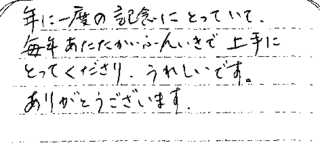 年に一度の記念にとっていて、
毎年あたたかいふんいきで上手に
とってくださり、うれしいです。
ありがとうございます。